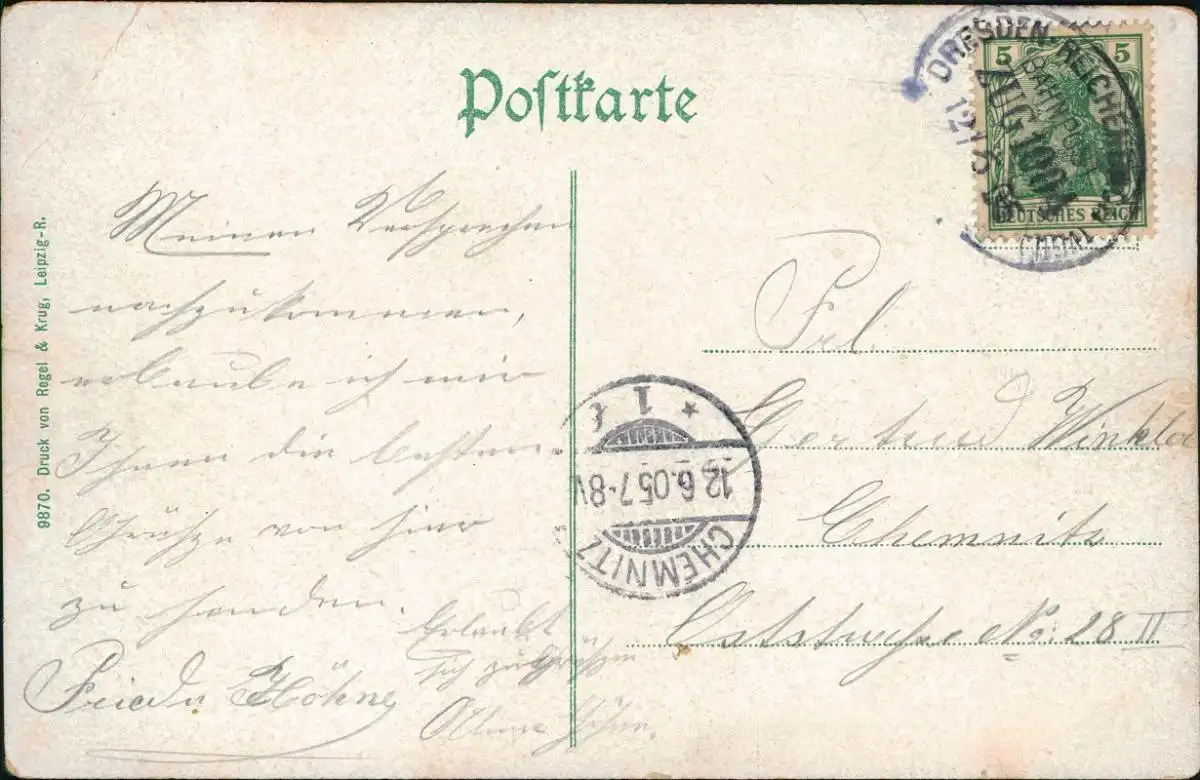 Postkarte
9870. Druck von Regel & Krug, Leipzig-R.
5 5
DEUTSCHES REICH
DRESDEN-REICHEN
BAHNPOST
ZUG 100
12/
Meinen Versprechen
nachzukommen,
erlaube ich mir
Ihnen die besten
Grüße von hier
zu senden.
Frieda Höhne
Erlaubt
sich zu grüßen
Frl.
Gertrud Winkler
Chemnitz
Oststraße No: 28 II
CHEMNITZ
12.6.05.7-8V
* 1